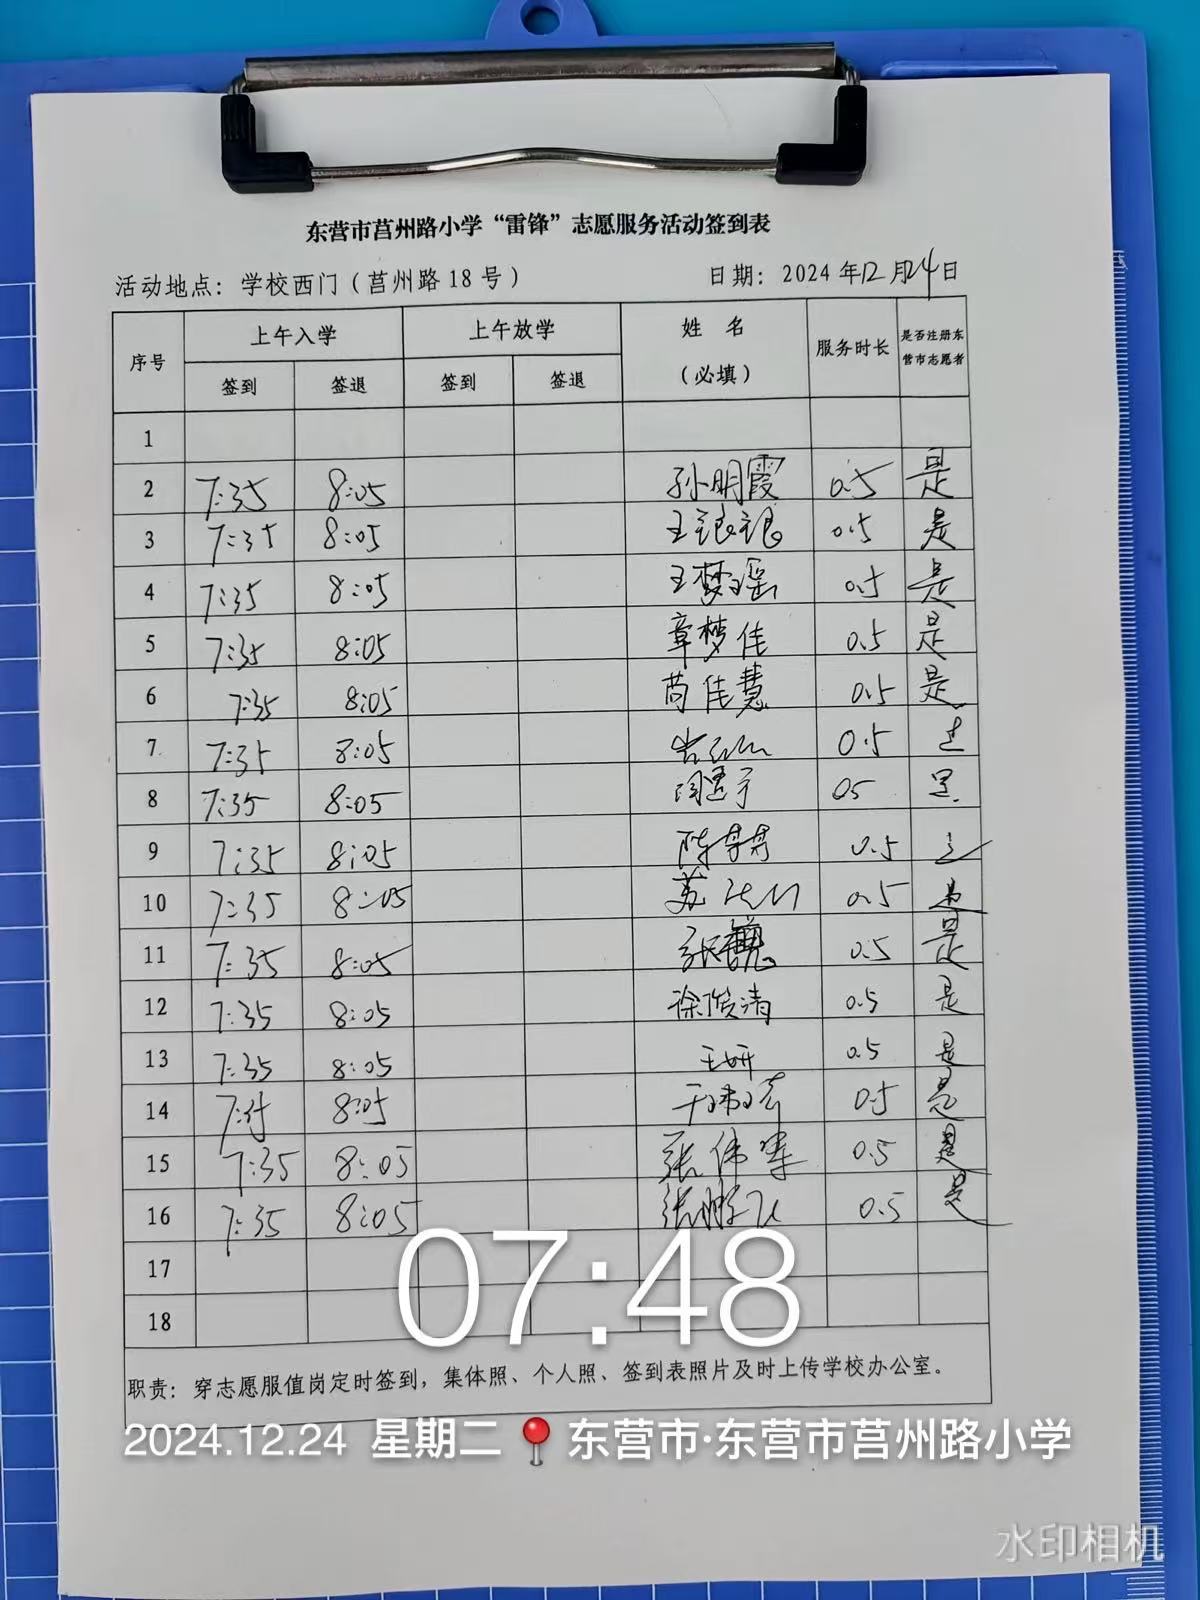 东营市莒州路小学“雷锋”志愿服务活动签到表
活动地点：学校西门（莒州路18号） 日期：2024年12月24日
序号 上午入学 上午放学 姓 名 （必填） 服务时长 是否注册东营市志愿者
签到 签退 签到 签退
1
2 7:35 8:05 孙明霞 0.5 是
3 7:35 8:05 王 0.5 是
4 7:35 8:05 王梦瑶 0.5 是
5 7:35 8:05 章梦佳 0.5 是
6 7:35 8:05 佳慧 0.5 是
7 7:35 8:05 0.5 是
8 7:35 8:05 05 是
9 7:35 8:05 陈 0.5
10 7:35 8:05 苏 0.5 是
11 7:35 8:05 张 0.5 是
12 7:35 8:05 徐俊清 0.5 是
13 7:35 8:05 王妍 0.5 是
14 7:35 8:05 0.5 是
15 7:35 8:05 张伟 0.5 是
16 7:35 8:05 张鹏飞 0.5 是
17
18
07:48
职责：穿志愿服值岗定时签到，集体照、个人照、签到表照片及时上传学校办公室。
2024.12.24 星期二 东营市·东营市莒州路小学
水印相机